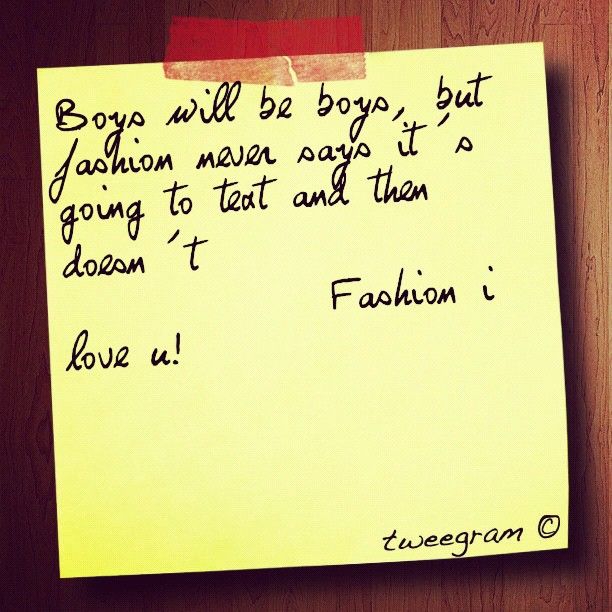 Boys will be boys, but
fashion never says it´s
going to text and then
doesn´t
Fashion i
love u!
tweegram ©